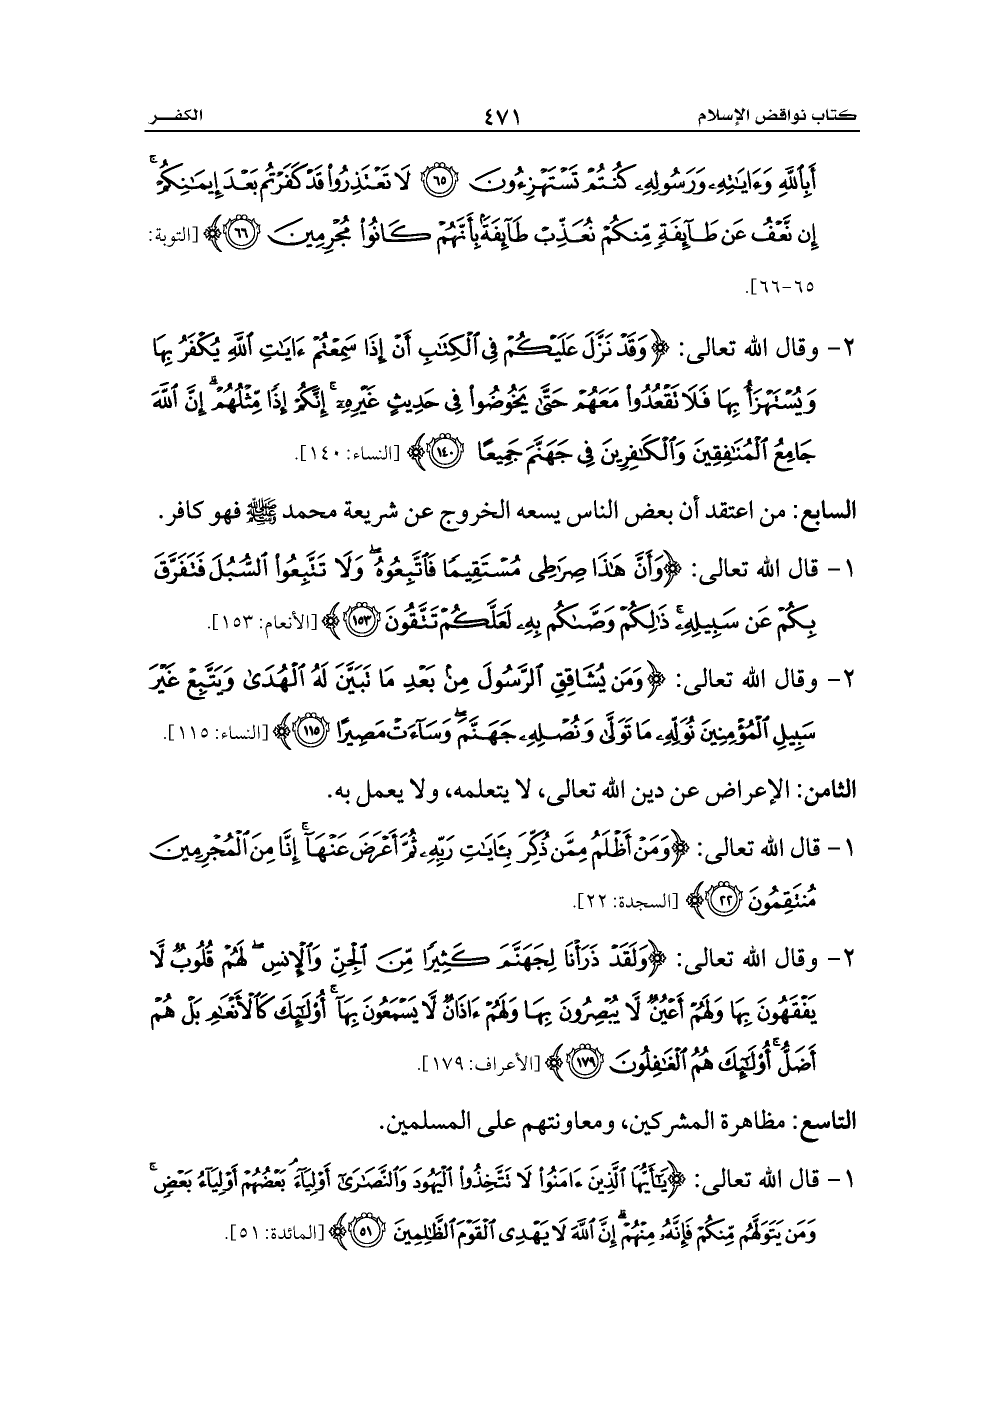 كتاب نواقض الإسلام ٤٧١ الكفـــر
أَبِٱللَّهِ وَءَايَٰتِهِۦ وَرَسُولِهِۦ كُنتُمْ تَسْتَهْزِءُونَ ٦٥ لَا تَعْتَذِرُوا۟ قَدْ كَفَرْتُم بَعْدَ إِيمَٰنِكُمْ ۚ
إِن نَّعْفُ عَن طَآئِفَةٍ مِّنكُمْ نُعَذِّبْ طَآئِفَةًۢ بِأَنَّهُمْ كَانُوا۟ مُجْرِمِينَ ٦٦﴾ [التوبة:
٦٥-٦٦].
٢- وقال الله تعالى: ﴿وَقَدْ نَزَّلَ عَلَيْكُمْ فِى ٱلْكِتَٰبِ أَنْ إِذَا سَمِعْتُمْ ءَايَٰتِ ٱللَّهِ يُكْفَرُ بِهَا
وَيُسْتَهْزَأُ بِهَا فَلَا تَقْعُدُوا۟ مَعَهُمْ حَتَّىٰ يَخُوضُوا۟ فِى حَدِيثٍ غَيْرِهِۦٓ ۚ إِنَّكُمْ إِذًا مِّثْلُهُمْ ۗ إِنَّ ٱللَّهَ
جَامِعُ ٱلْمُنَٰفِقِينَ وَٱلْكَٰفِرِينَ فِى جَهَنَّمَ جَمِيعًا ١٤٠﴾ [النساء: ١٤٠].
السابع: من اعتقد أن بعض الناس يسعه الخروج عن شريعة محمد ﷺ فهو كافر.
١- قال الله تعالى: ﴿وَأَنَّ هَٰذَا صِرَٰطِى مُسْتَقِيمًا فَٱتَّبِعُوهُ ۖ وَلَا تَتَّبِعُوا۟ ٱلسُّبُلَ فَتَفَرَّقَ
بِكُمْ عَن سَبِيلِهِۦ ۚ ذَٰلِكُمْ وَصَّىٰكُم بِهِۦ لَعَلَّكُمْ تَتَّقُونَ ١٥٣﴾ [الأنعام: ١٥٣].
٢- وقال الله تعالى: ﴿وَمَن يُشَاقِقِ ٱلرَّسُولَ مِنۢ بَعْدِ مَا تَبَيَّنَ لَهُ ٱلْهُدَىٰ وَيَتَّبِعْ غَيْرَ
سَبِيلِ ٱلْمُؤْمِنِينَ نُوَلِّهِۦ مَا تَوَلَّىٰ وَنُصْلِهِۦ جَهَنَّمَ ۖ وَسَآءَتْ مَصِيرًا ١١٥﴾ [النساء: ١١٥].
الثامن: الإعراض عن دين الله تعالى، لا يتعلمه، ولا يعمل به.
١- قال الله تعالى: ﴿وَمَنْ أَظْلَمُ مِمَّن ذُكِّرَ بِـَٔايَٰتِ رَبِّهِۦ ثُمَّ أَعْرَضَ عَنْهَآ ۚ إِنَّا مِنَ ٱلْمُجْرِمِينَ
مُنتَقِمُونَ ٢٢﴾ [السجدة: ٢٢].
٢- وقال الله تعالى: ﴿وَلَقَدْ ذَرَأْنَا لِجَهَنَّمَ كَثِيرًا مِّنَ ٱلْجِنِّ وَٱلْإِنسِ ۖ لَهُمْ قُلُوبٌ لَّا
يَفْقَهُونَ بِهَا وَلَهُمْ أَعْيُنٌ لَّا يُبْصِرُونَ بِهَا وَلَهُمْ ءَاذَانٌ لَّا يَسْمَعُونَ بِهَآ ۚ أُو۟لَٰٓئِكَ كَٱلْأَنْعَٰمِ بَلْ هُمْ
أَضَلُّ ۚ أُو۟لَٰٓئِكَ هُمُ ٱلْغَٰفِلُونَ ١٧٩﴾ [الأعراف: ١٧٩].
التاسع: مظاهرة المشركين، ومعاونتهم على المسلمين.
١- قال الله تعالى: ﴿يَٰٓأَيُّهَا ٱلَّذِينَ ءَامَنُوا۟ لَا تَتَّخِذُوا۟ ٱلْيَهُودَ وَٱلنَّصَٰرَىٰٓ أَوْلِيَآءَ ۘ بَعْضُهُمْ أَوْلِيَآءُ بَعْضٍ ۚ
وَمَن يَتَوَلَّهُم مِّنكُمْ فَإِنَّهُۥ مِنْهُمْ ۗ إِنَّ ٱللَّهَ لَا يَهْدِى ٱلْقَوْمَ ٱلظَّٰلِمِينَ ٥١﴾ [المائدة: ٥١].